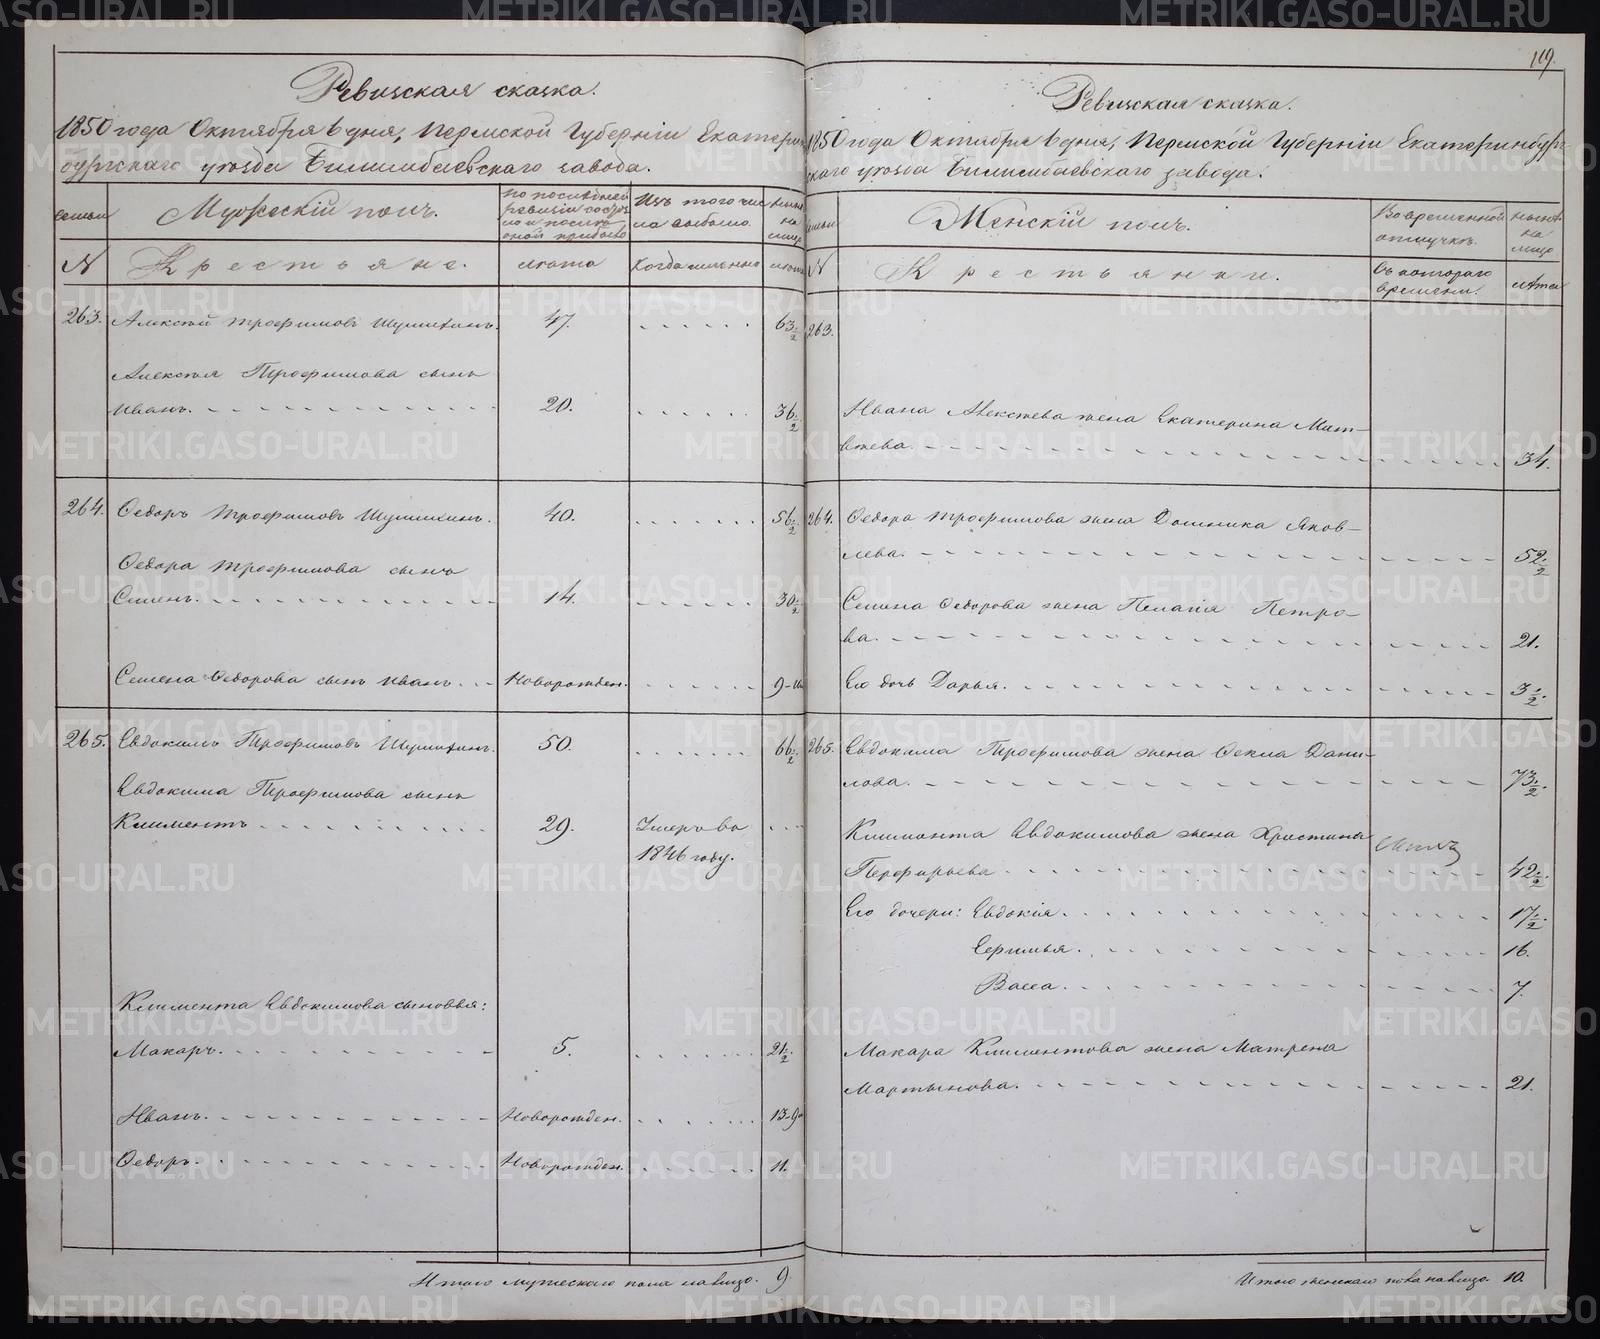 Ревизская сказка.
1850 года Октября 6 дня, Пермской Губерніи Екатерин
бургскаго уѣзда Билимбаевскаго завода.
семьи
Мужескій полъ.
по послѣдней
ревизіи состоя
ло и послѣ
оной прибыло
Изъ того чис
ла выбыло.
нынѣ
на
лицо
N
Крестьяне.
лѣта
Когда именно
лѣта
263.
Алексѣй Трофимовъ Шумихинъ.
47.
63½
Алексѣя Трофимова сынъ
Иванъ.
20.
36½
264.
Ѳедоръ Трофимовъ Шумихинъ.
40.
56½
Ѳедора Трофимова сынъ
Семенъ.
14.
30½
Семена Ѳедорова сынъ Иванъ.
Новорожден.
9-м
265.
Евдокимъ Трофимовъ Шумихинъ.
50.
66½
Евдокима Трофимова сынъ
Климентъ
29.
Умеръ во
1846 году.
Климента Евдокимова сыновья:
Макаръ.
5.
21½.
Иванъ.
Новорожден.
13-9м
Ѳедоръ.
Новорожден.
11.
Итого мужескаго пола налицо. 9.
119.
Ревизская сказка.
1850 года Октября 6 дня, Пермской Губерніи Екатеринбург-
скаго уѣзда Билимбаевскаго завода.
семьи
Женскій полъ.
Во временной
отлучкѣ.
нынѣ
на
лицо
N
Крестьянки.
Съ котораго
времени.
лѣта
263.
Ивана Алексѣева жена Екатерина Мат-
вѣева.
34.
264.
Ѳедора Трофимова жена Домника Яков-
лева.
52½
Семена Ѳедорова жена Пелагія Петро-
ва.
21.
Его дочь Дарья.
3½.
265.
Евдокима Трофимова жена Ѳекла Дани-
лова.
73½.
Климента Евдокимова жена Христина
Перфирьева
42½.
Его дочери: Евдокія.
17½.
Сермилья.
16.
Васса.
7.
Макара Климентова жена Матрена
Мартынова.
21.
Итого женскаго пола налицо. 10.
METRIKI.GASO-URAL.RU